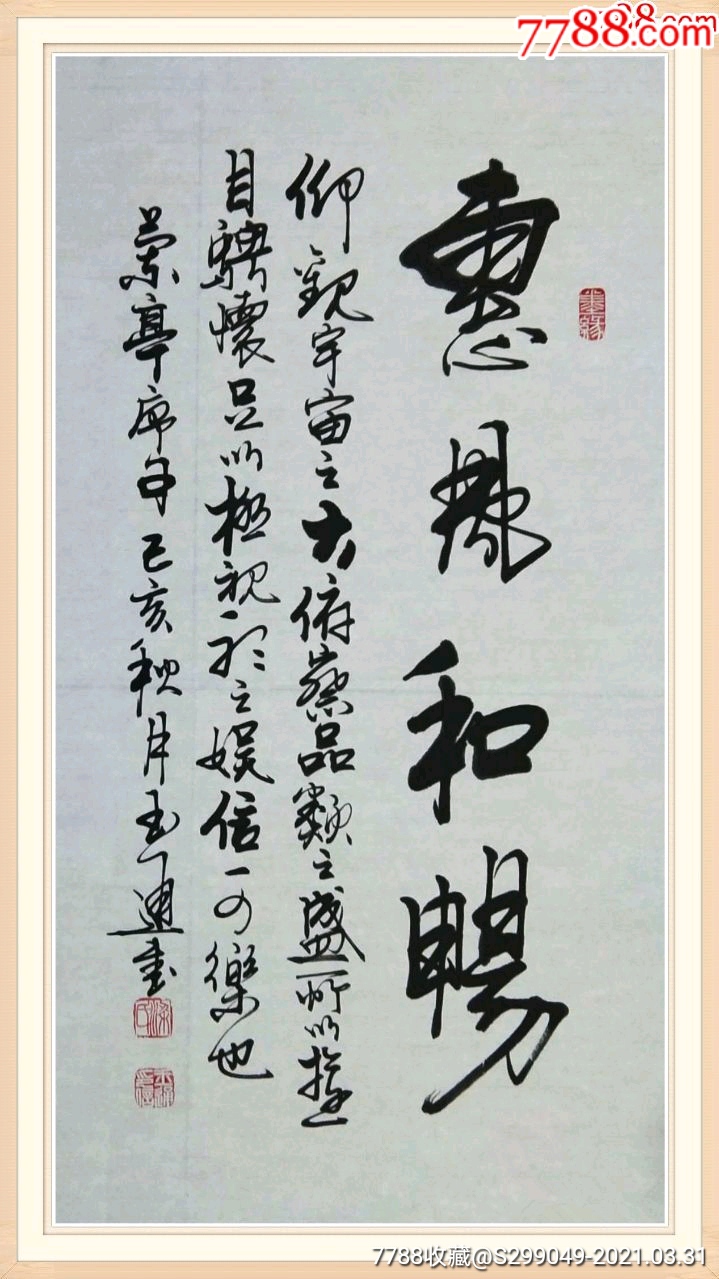 7788.com
惠風和暢
仰觀宇宙之大俯察品類之盛所以遊
目騁懷足以極視聽之娛信可樂也
蘭亭序句己亥秋月玉通書
7788收藏@S299049-2021.03.31